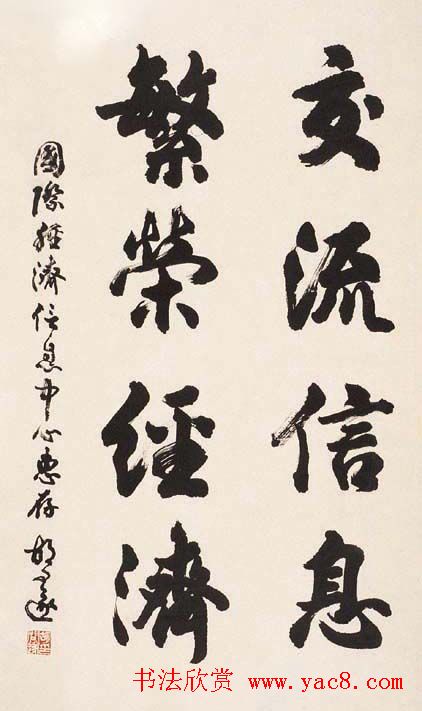 交流信息
繁榮經濟
國際經濟信息中心惠存
书法欣赏 www.yac8.com